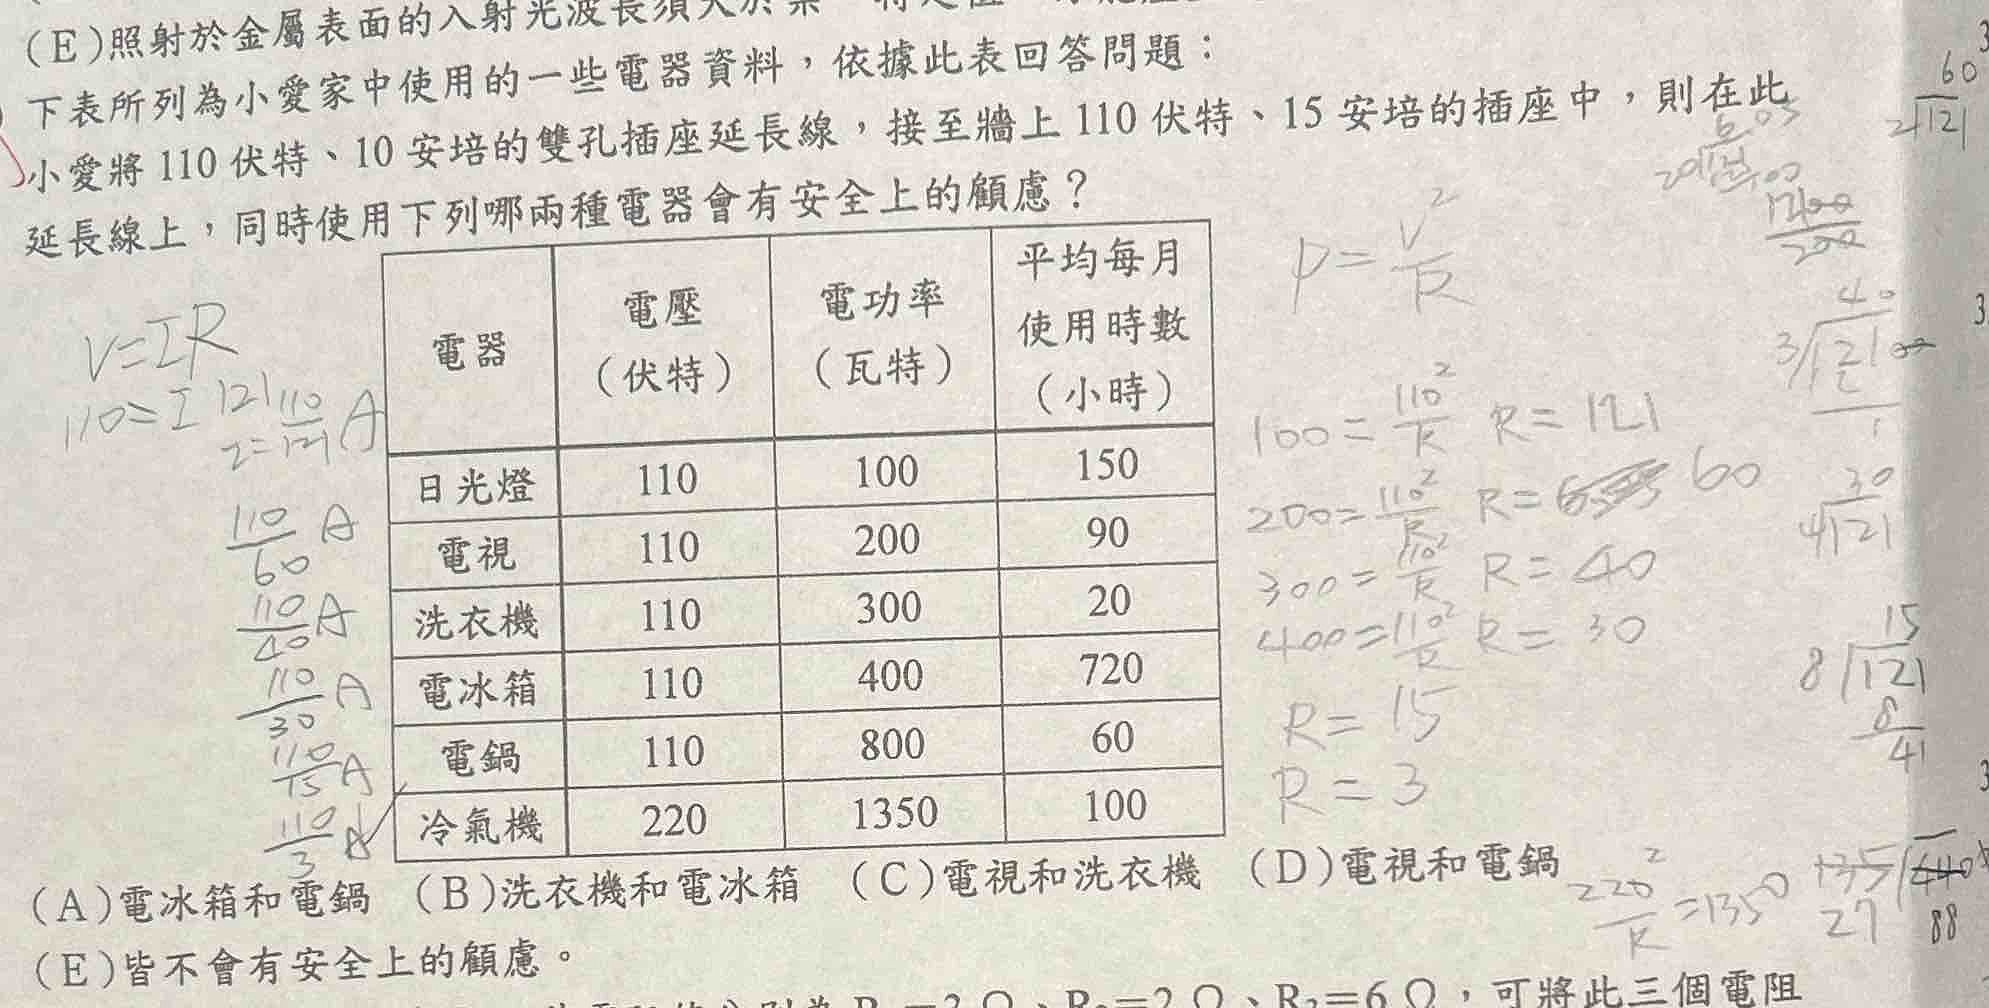 (E)照射於金屬表面的入射光波長須大於某一特定值
下表所列為小愛家中使用的一些電器資料，依據此表回答問題：
小愛將 110 伏特、10 安培的雙孔插座延長線，接至牆上 110 伏特、15 安培的插座中，則在此
延長線上，同時使用下列哪兩種電器會有安全上的顧慮？
電器 電壓（伏特） 電功率（瓦特） 平均每月使用時數（小時）
日光燈 110 100 150
電視 110 200 90
洗衣機 110 300 20
電冰箱 110 400 720
電鍋 110 800 60
冷氣機 220 1350 100
V=IR
110=I 121 I=110/121 A
110/60 A
110/40 A
110/30 A
110/15 A
110/3 A
P=V²/R
100=110²/R R=121
200=110²/R R= 60
300=110²/R R=40
400=110²/R R=30
R=15
R=3
60
2 121
6.05
12100
200
40
3 12100
12
1
30
4 121
15
8 121
8
41
(A)電冰箱和電鍋 (B)洗衣機和電冰箱 (C)電視和洗衣機 (D)電視和電鍋
220²/R=1350
135 440
27 88
(E)皆不會有安全上的顧慮。
=2Ω、R₂=2Ω、R₃=6Ω，可將此三個電阻